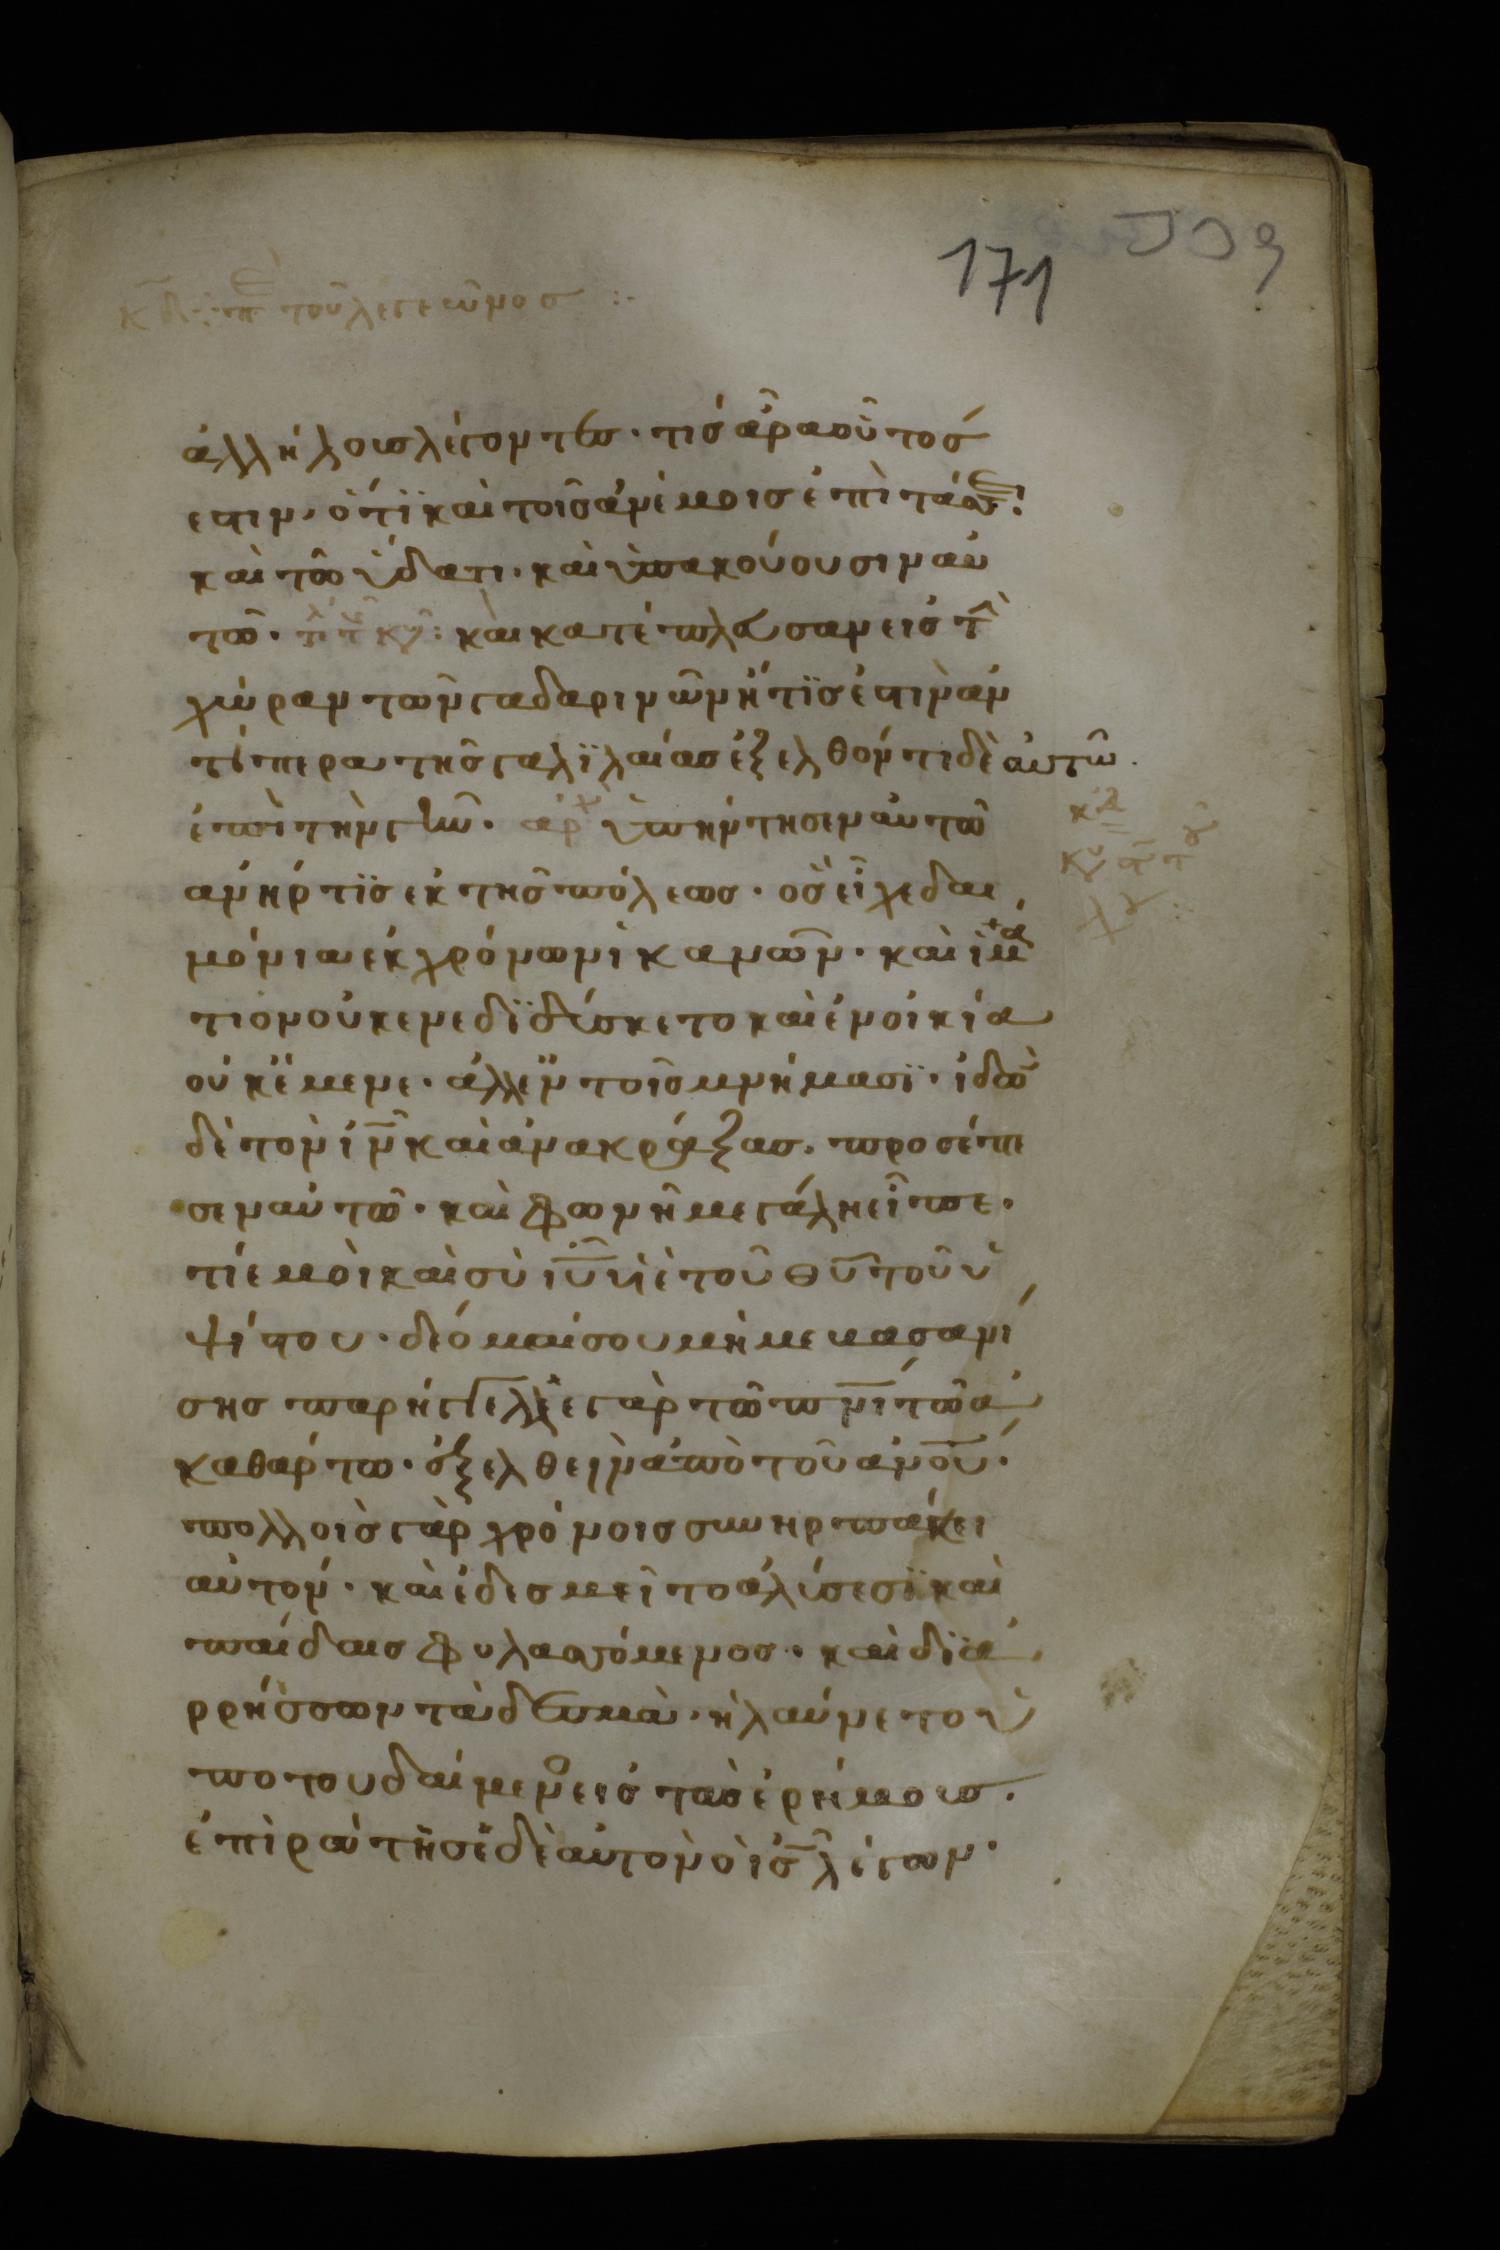 171
κδ περὶ τοῦ λεγεῶνος :·
ἀλλήλοισ λέγοντεσ· τίσ ἄρα οὗτόσ
ἐστιν, ὅτι καὶ τοῖσ ἀνέμοισ ἐπιτάσσει
καὶ τῶ ὕδατι· καὶ ὑπακούουσιν αὐ
τῶ· καὶ κατέπλευσαν εἰσ τὴν
χώραν τῶν γαδαρινῶν ἥτισ ἐστὶν ἀν
τίπερα τῆσ γαλιλαίασ ἐξελθόντι δὲ αὐτῶ
ἐπὶ τὴν γῆν· ἀρχ ὑπήντησεν αὐτῶ
ἀνήρ τισ ἐκ τῆσ πόλεωσ· ὃσ εἶχε δαι
μόνια ἐκ χρόνων ἱκανῶν· καὶ ἱμά
τιον οὐκ ἐνεδιδύσκετο καὶ ἐν οἰκία
οὐκ ἔμενε· ἀλλ' ἐν τοῖσ μνήμασι· ἰδὼν
δὲ τὸν ιν καὶ ἀνακράξασ· προσέπε
σεν αὐτῶ· καὶ φωνῆ μεγάλη εἶπε·
τί ἐμοὶ καὶ σὺ ιυ υἱὲ τοῦ θυ τοῦ ὑ
ψίστου· δέομαί σου μή με βασανί
σησ παρήγγελλε γὰρ τῶ πνι τῶ ἀ
καθάρτω· ἐξελθεῖν ἀπὸ τοῦ ανου·
πολλοῖσ γὰρ χρόνοισ συνηρπάκει
αὐτόν· καὶ ἐδεσμεῖτο ἁλύσεσι καὶ
παίδαισ φυλασσόμενοσ· καὶ δια
ρρήσσων τὰ δεσμὰ· ἠλαύνετο ὑ
πὸ τοῦ δαίμενοσ εἰσ τὰσ ἐρήμουσ·
ἐπιρώτησε δὲ αὐτὸν ὁ ισ λέγων·